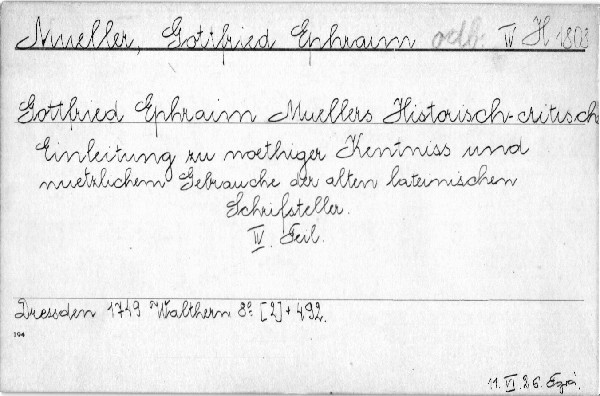 Mueller, Gottfried Ephraim odb. IV H 1808
Gottfried Ephraim Muellers Historisch-critische
Einleitung zu noethiger Kentniss und
nuetzlichem Gebrauche der alten lateinischen
Schrifsteller.
IV. Teil.
Dresden 1749 Walthern 8º [2]+492.
194
11. VI. 26.